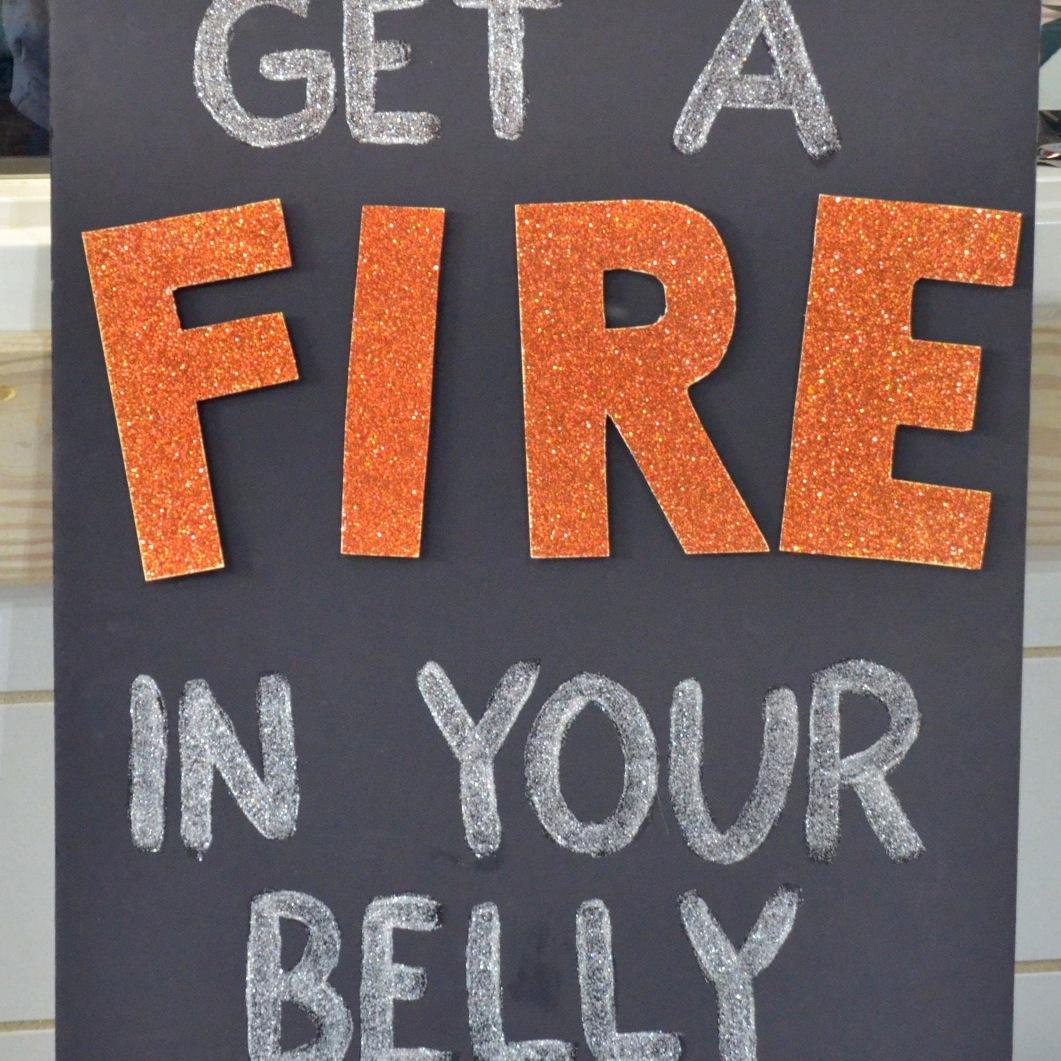 GET A
FIRE
IN YOUR
BELLY